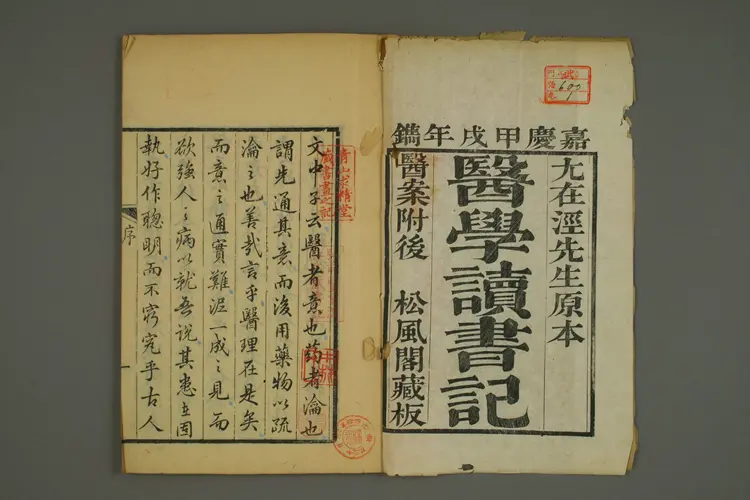 嘉慶甲戌年鐫
尤在涇先生原本
醫學讀書記
醫案附後　松風閣藏板
文中子云醫者意也药者瀹也
謂先通其意而後用藥物以疏
瀹之也善哉言乎醫理在是矣
而意之通實難泥一成之見而
欲強人之病以就吾說其患在固
執好作聰明而不窮究乎古人
序